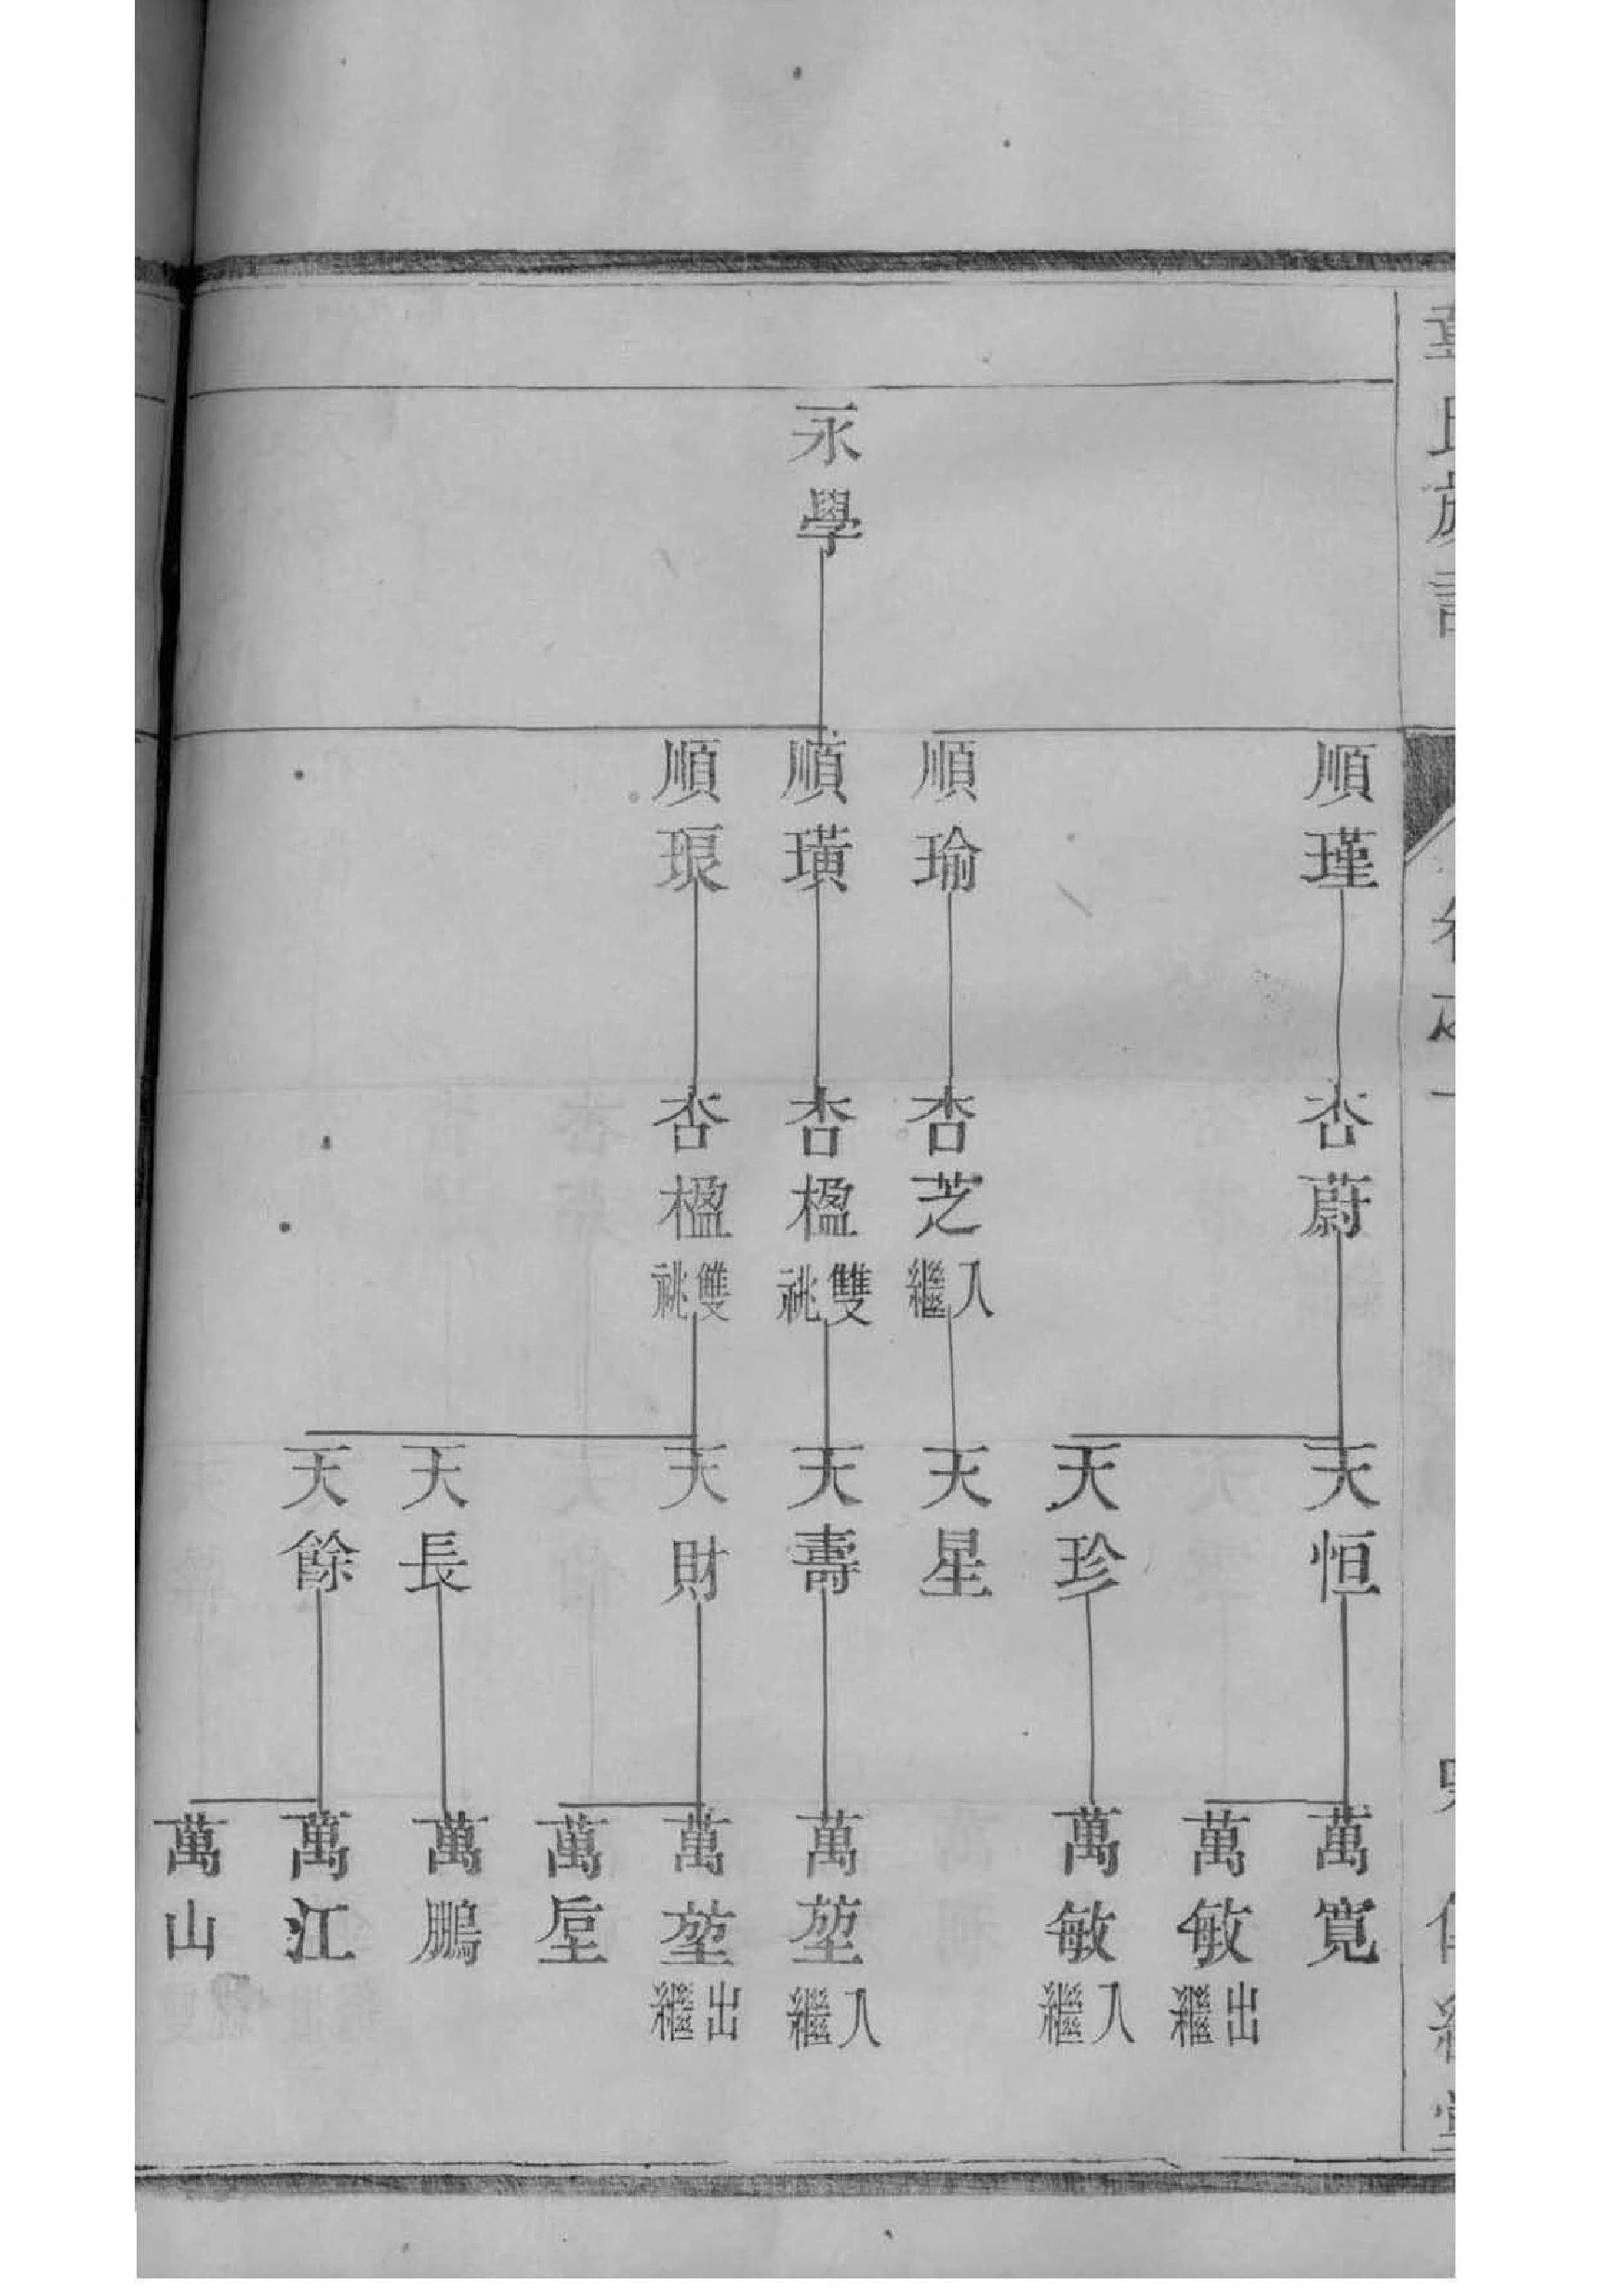 永學
順瑾
順瑜
順璜
順珢
杏蔚
杏芝 入繼
杏楹 雙祧
杏楹 雙祧
天恒
天珍
天星
天壽
天財
天長
天餘
萬寬
萬敏 出繼
萬敏 入繼
萬堃 入繼
萬堃 出繼
萬垕
萬鵬
萬江
萬山